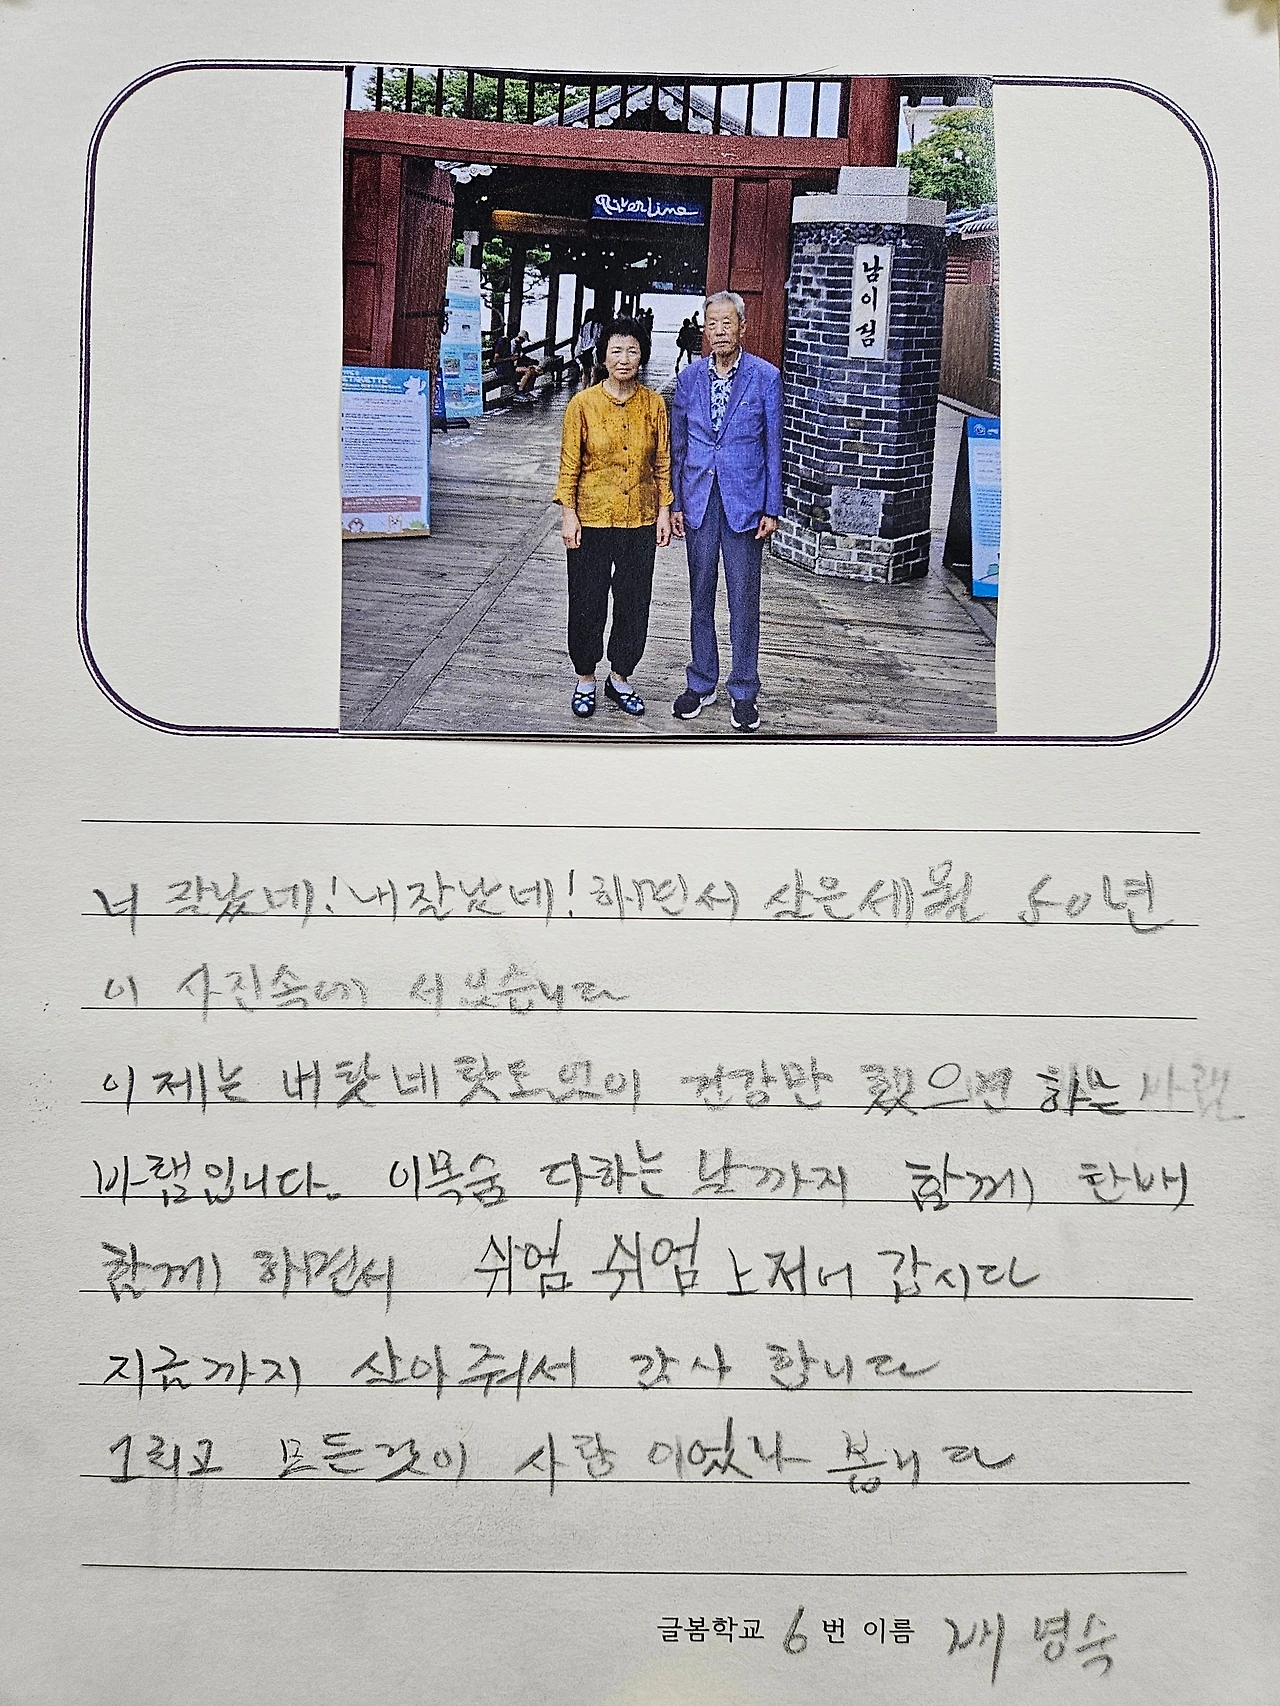 Riverline
남이섬
ETIQUETTE
너 잘났네! 내 잘났네! 하면서 살은 세월 50년
이 사진속에 서 있습니다
이제는 내 탓 네 탓도 없이 건강만 했으면 하는 바램
바램입니다. 이 목숨 다하는 날까지 함께 한배
함께 하면서 쉬엄 쉬엄 노저어 갑시다
지금까지 살아줘서 감사 합니다
그리고 모든것이 사랑 이었나 봅니다
글봄학교 6 번 이름 명숙